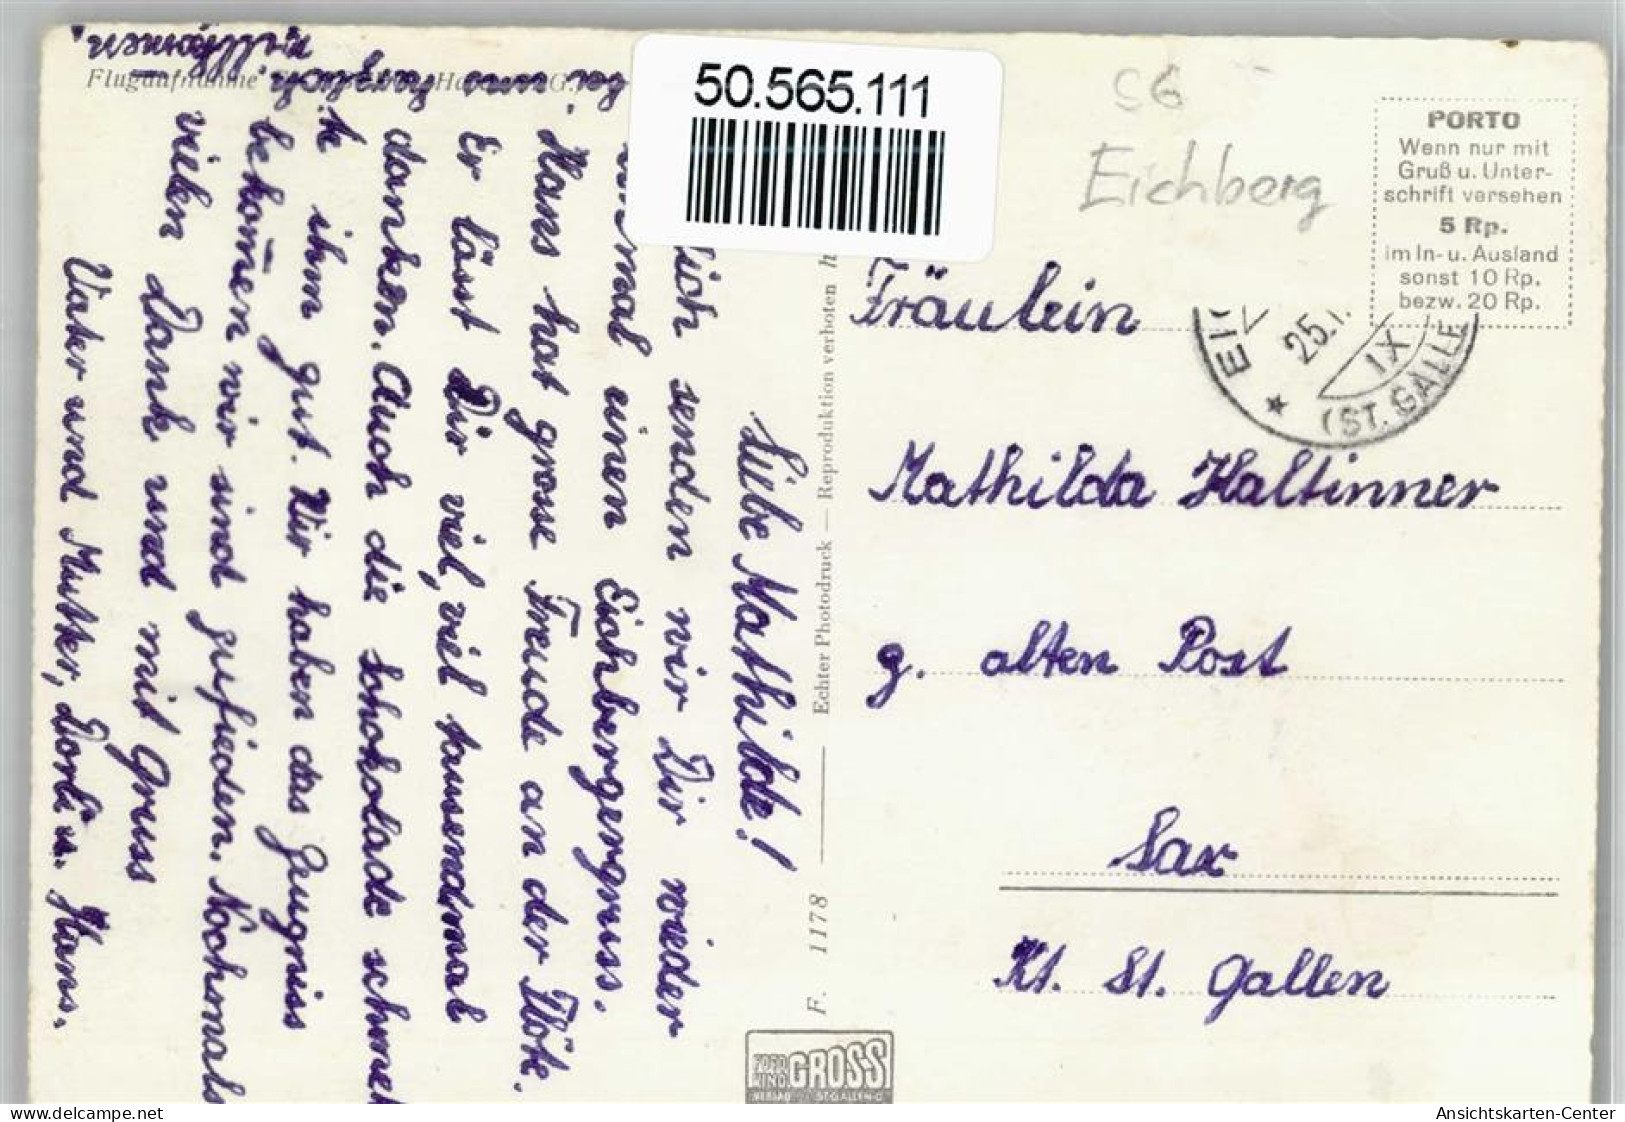 50.565.111
SG
Eichberg
PORTO
Wenn nur mit
Gruß u. Unter-
schrift versehen
5 Rp.
im In- u. Ausland
sonst 10 Rp.
bezw. 20 Rp.
25.
IX
(ST. GALLE
Fräulein
Mathilda Haltinner
z. alten Post
Sax
Kt. St. Gallen
F. 1178
Echter Photodruck — Reproduktion verboten
FOTO
GROSS
Flugaufnahme
Liebe Mathilde!
senden wir Dir wieder
einen Eichbergergruss.
Hans hat grosse Freude an der Flöte.
Er lässt Dir viel, viel tausendmal
danken. Auch die Schokolade schmek
k ihm gut. Wir haben das Zeugniss
bekommen wir sind zufrieden. Nochmals
vielen Dank und mit Gruss
Vater und Mutter, Dorli u. Hans.
bei uns